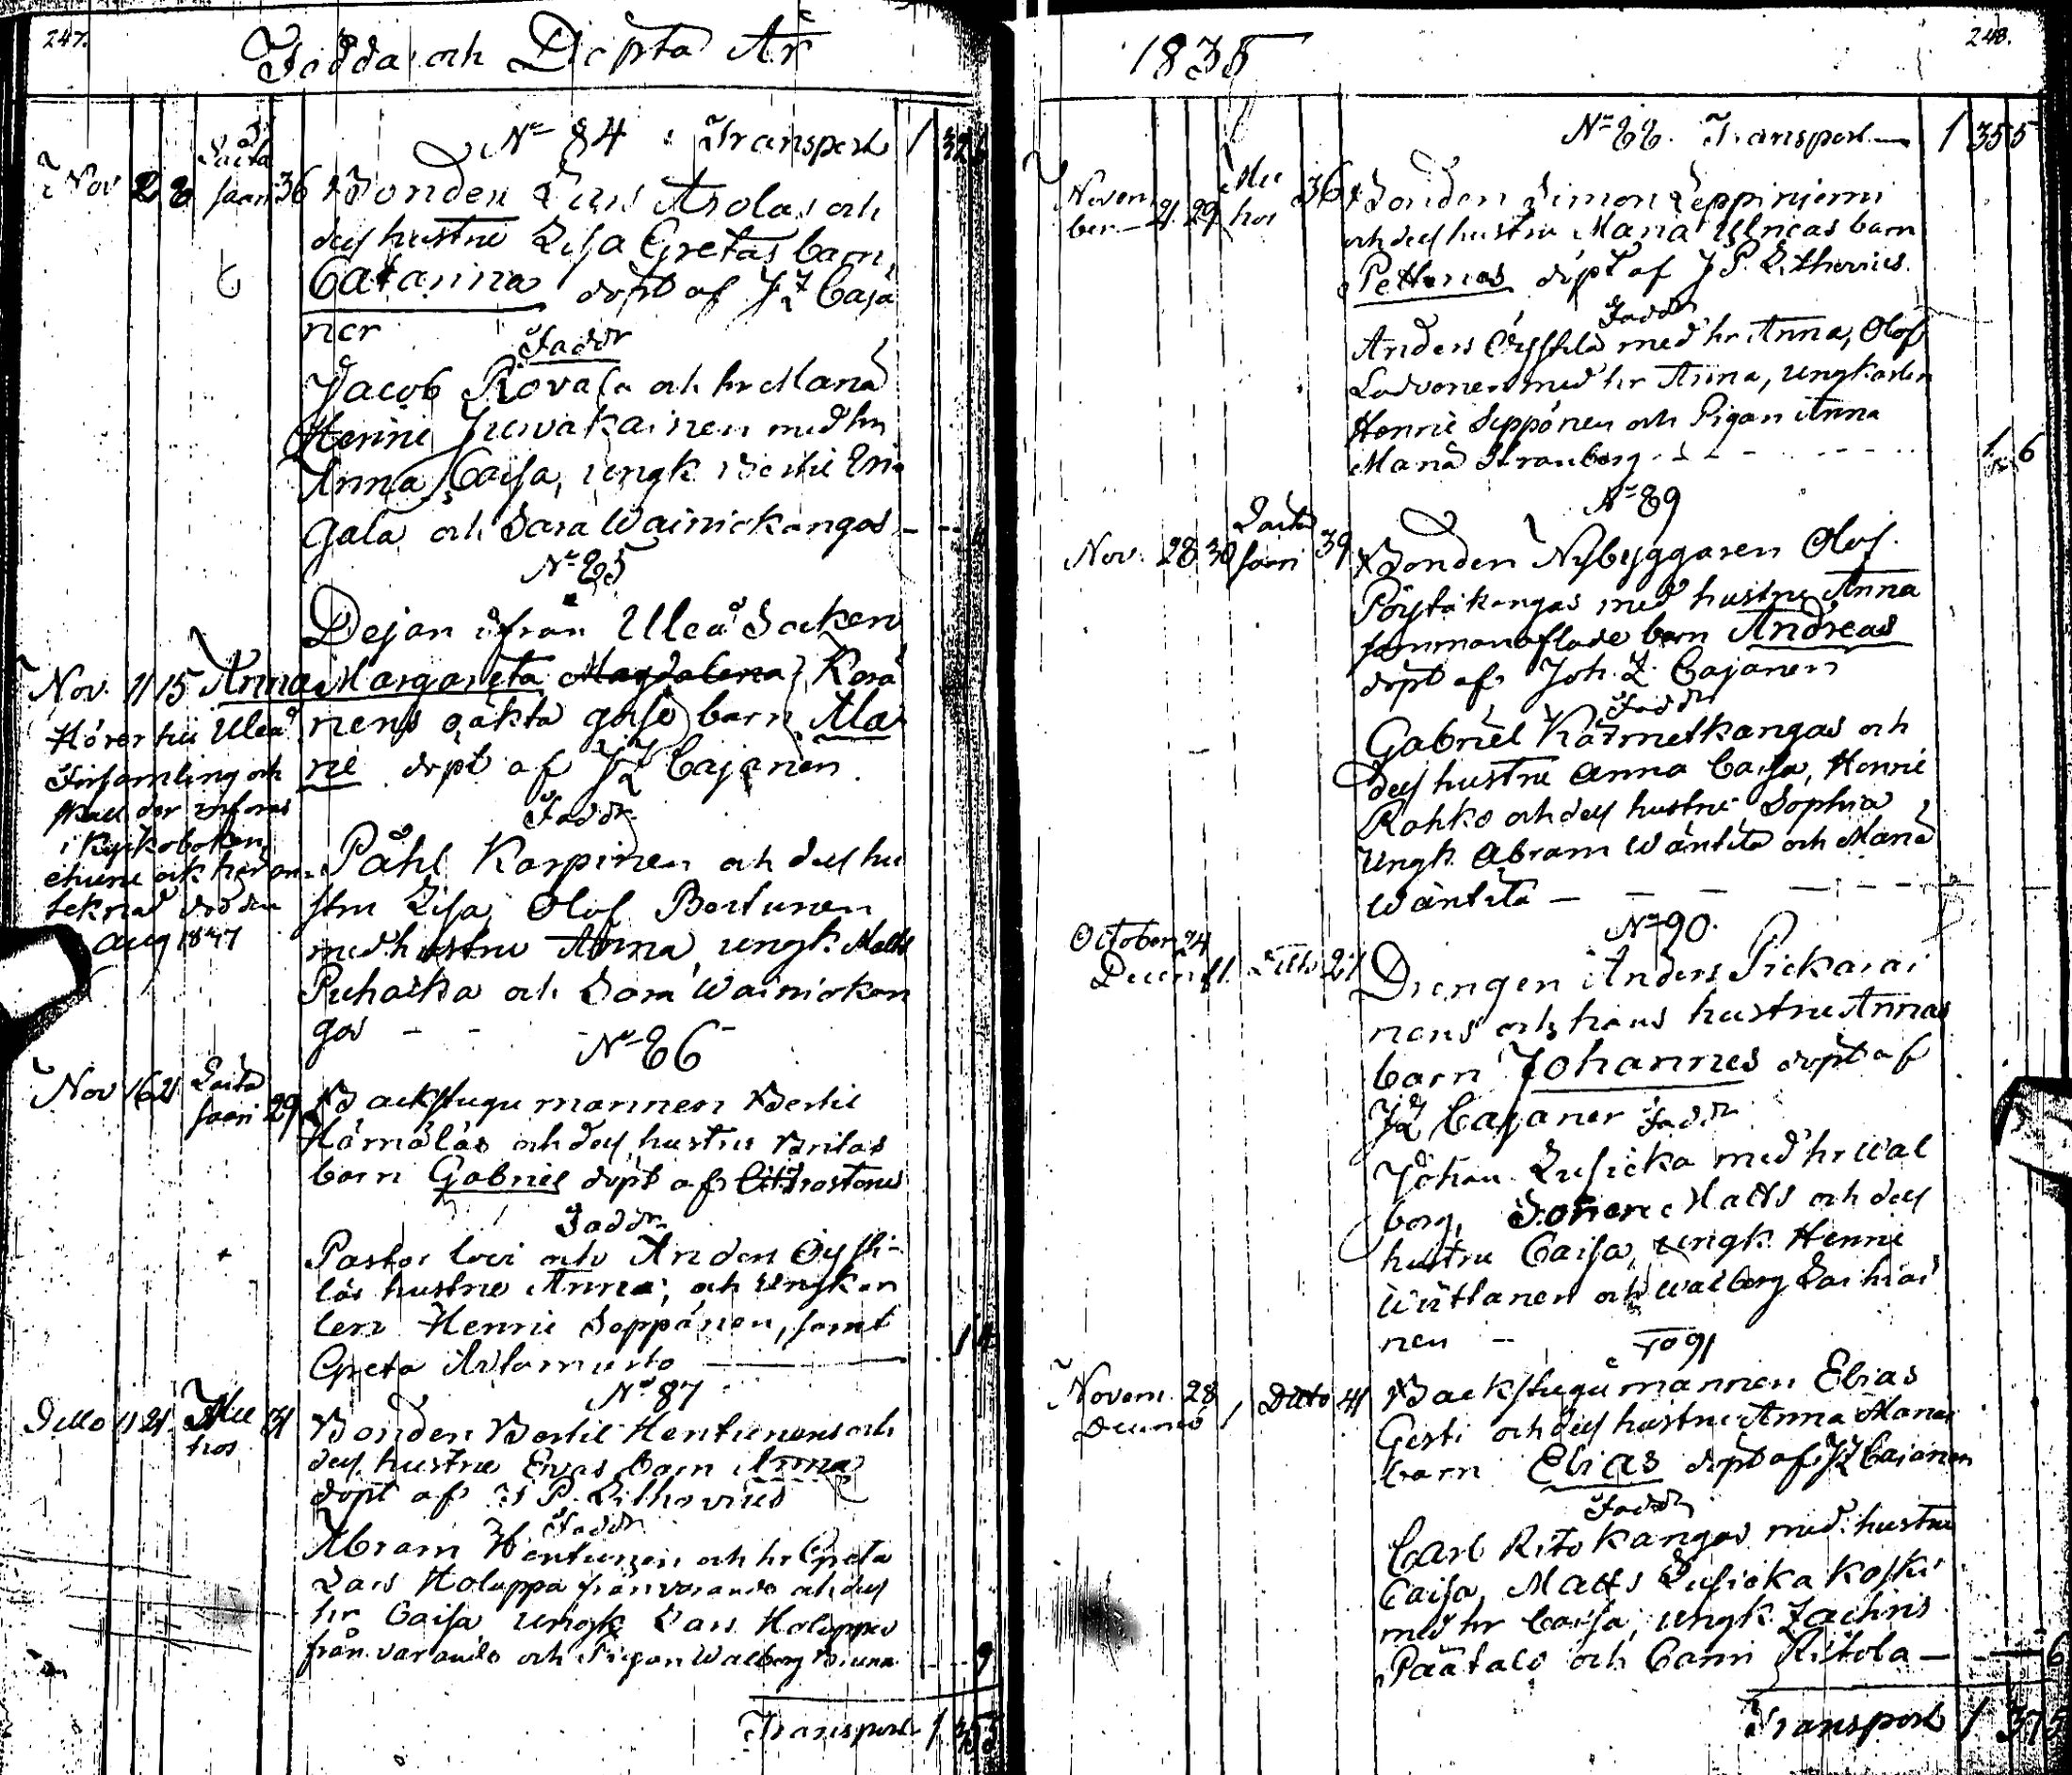 247.
Födda och Döpta År
No 84 Transport 1
Nov 2 8 Saari 36 Bonden Lars Arolas och
dess hustru Lisa Gretas barn,
Catarina döpt af J Z Caja
ner
Faddr
Jacob Rovala och hr Maria
Henric Juvakainen med hu
Anna Caisa, ungk Bertil Eri
gala och Sara Wainiokangas
No 85
Dejan ifrån Uleå Socken
Nov. 11 15 Anna Margareta Magdalena Kerä
nens oäkta gosse barn Ma
rie döpt af J Z Cajanen
Hörer till Uleå
Församling och
skall der införas
i kyrkoboken,
tecknad
Aug 1847
Faddr
Påhl Karpinen och dess hu
stru Lisa, Olof
med hustru Anna, ungk. Matts
Puhacka och Sara Wainiokan
gas
No 86
Nov 16 21 Saari 29 Backstugu mannen Bertil
Hämäläs och dess hustru Britas
barn Gabriel döpt af
Faddr
Pastor och Anders
läs hustru Anna, och Ungkar
len Henric Seppänen, samt
Greta
14
No 87
Ditto 11 21 31 Bonden Bertil Hentunens och
dess hustru Evas barn Anna
döpt af J P. Lithovius
Faddr
Abram Hentunen och hr Greta
Lars Holappa frånvarande och dess
hr Caisa, ungk Lars Holappa
från varande och Pigan Walborg
9
Transport 1 355
1835
248.
No 88. Transport 1 355
Novem
ber 21 29 hos 36 Bonden Simon Leppiniemi
och dess hustru Maria Ulricas barn
Petterus döpt af J P. Lithovius.
Faddr
Anders med hr Anna, Olof
Ladvonen med hr Anna, Ungkarlen
Henric Seppänen och Pigan Anna
Maria Stranberg
6
No 89
Nov. 28 30 Saari 39 Bonden Nybyggaren Olof
Pöytäkangas med hustru Anna
sammanaflade barn Andreas
döpt af Joh. Z. Cajanen
Faddr
Gabriel Kärmetkangas och
dess hustru Anna Caisa, Henric
Rahko och dess hustru Sophia
Ungk. Abram Wäntita och Maria
Wäntita
No 90.
October 24
Ditto 27 Drengen Anders Pickarai
nens och hans hustru Annas
barn Johannes döpt af
J Z Cajaner Faddr
Johan Lusicka med hr Wal
borg, Sonen Matts och dess
hustru Caisa, Ungk. Henric
och Walborg
nen
No 91
Novem 28
1 Ditto 41 Backstugu mannen Elias
Gerti och dess hustru Anna Marias
barn Elias döpt af J Z Cajanen
Faddr
Carl Ritokangas med hustru
Caisa, Matts Lusicka koski
med hr Caisa, ungk Zachris
Päätalo och Carin Ritola
6
Transport 1 375